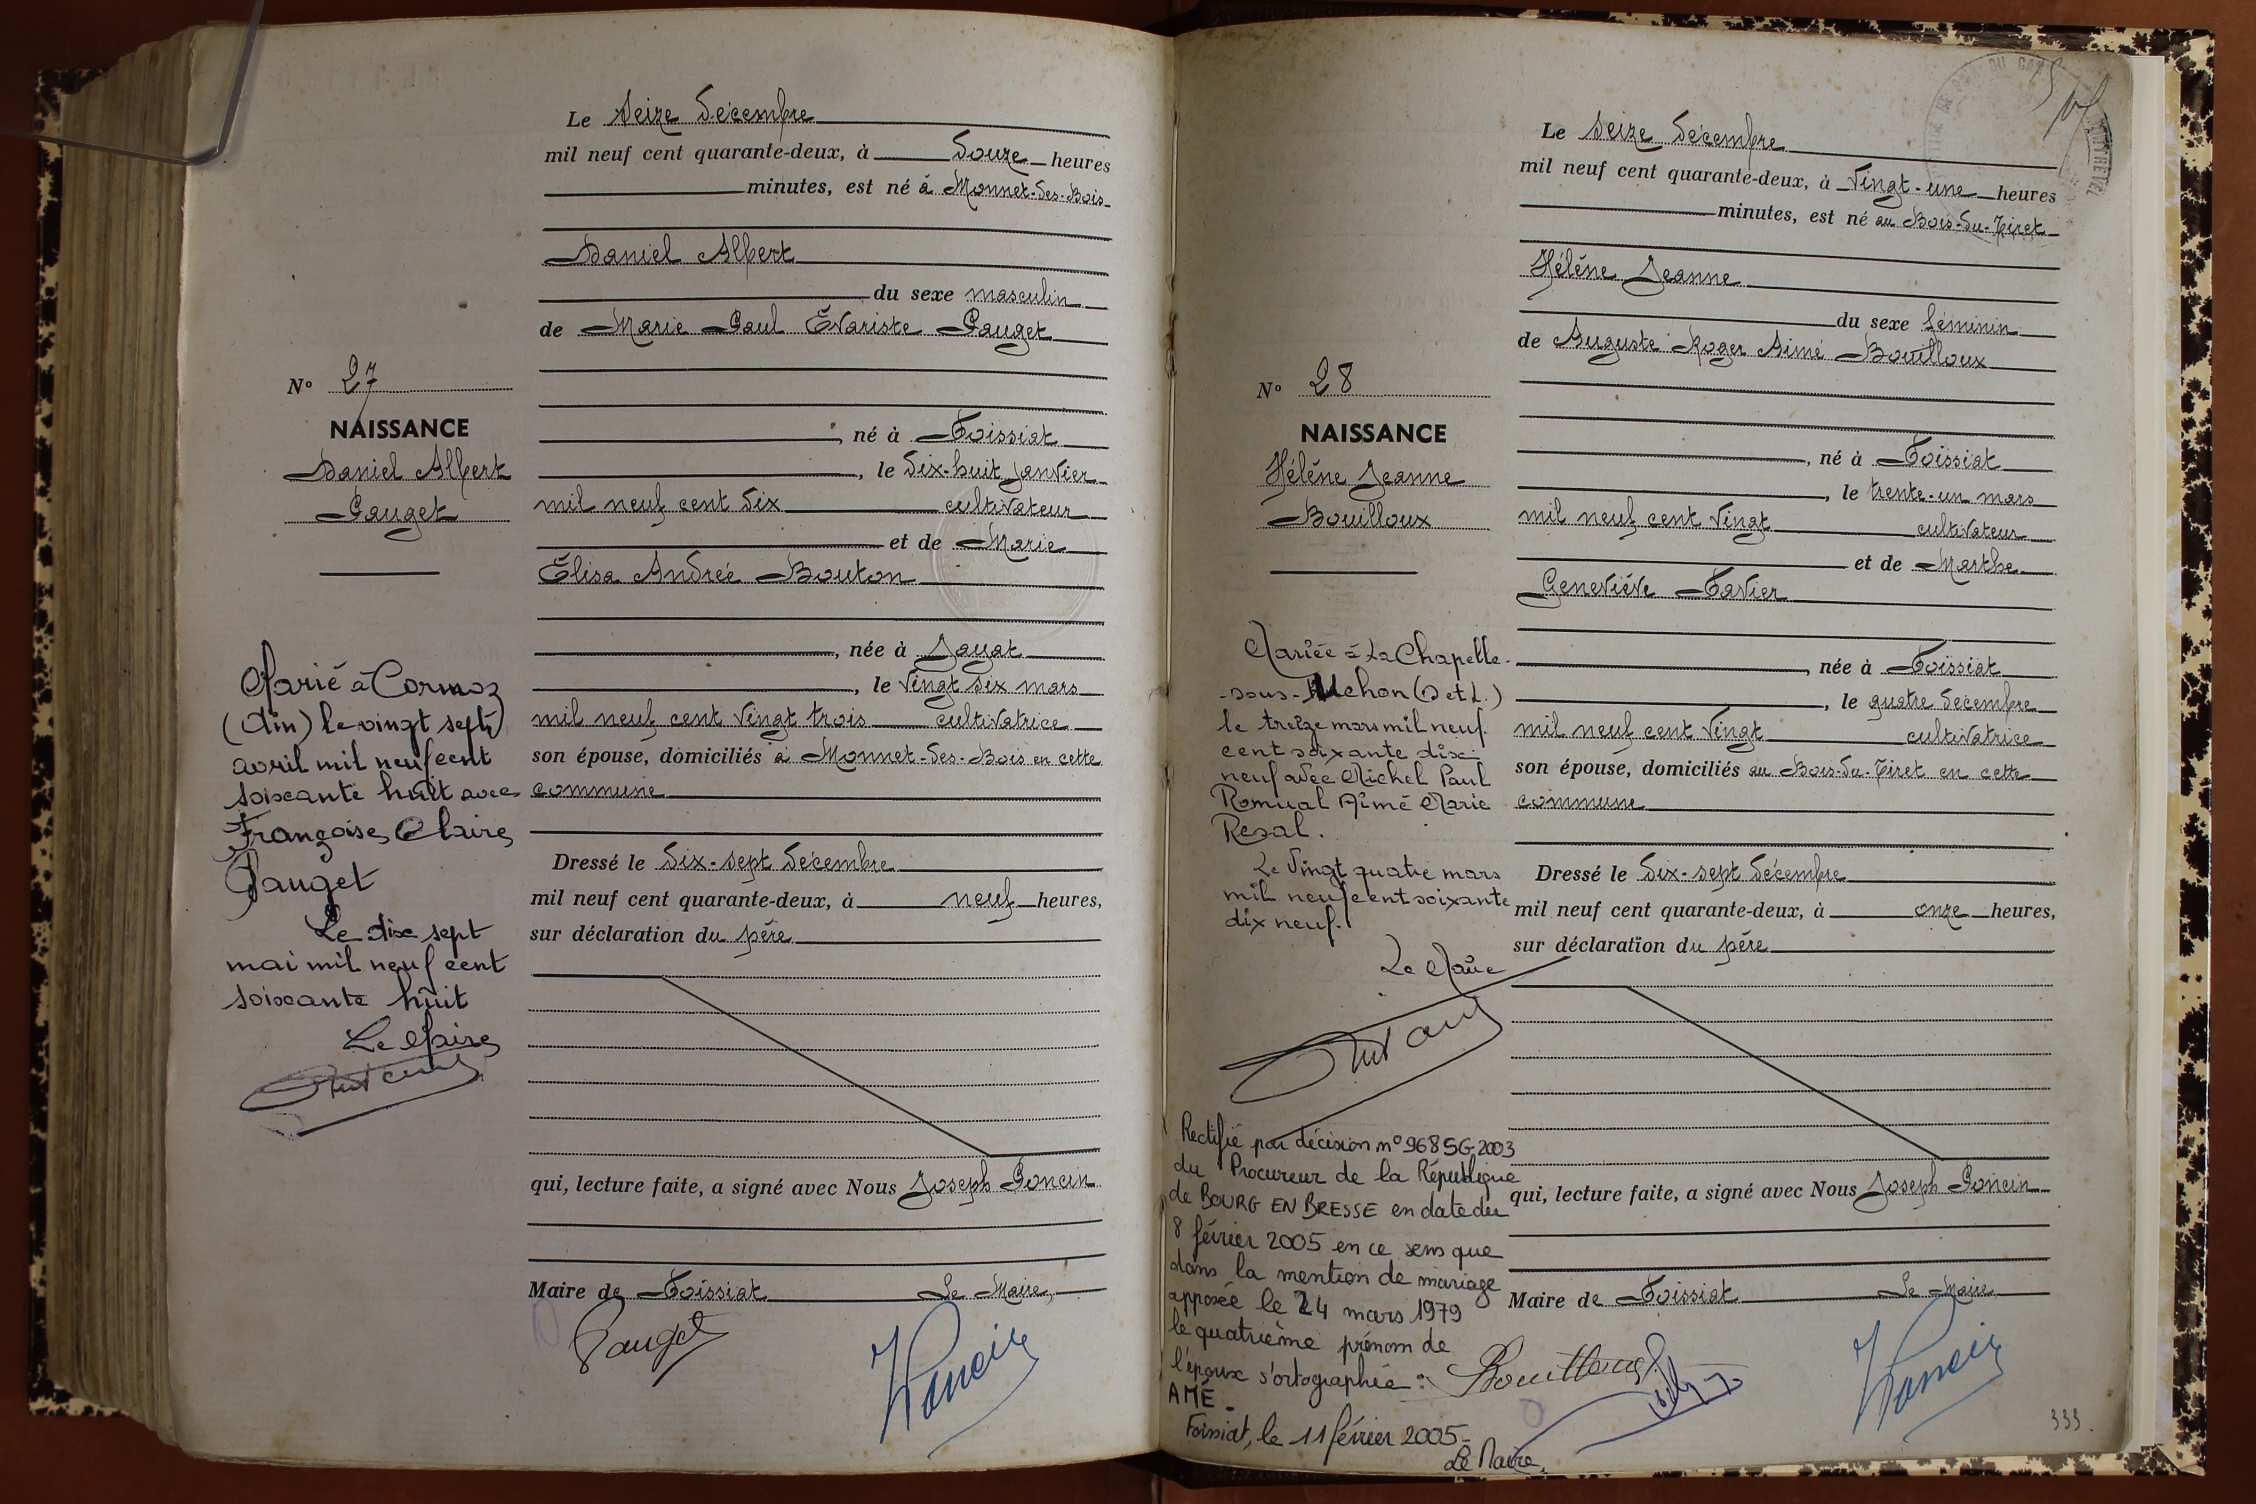 Le Seize Décembre
mil neuf cent quarante-deux, à Douze heures
minutes, est né à Monnet-des-Bois
Daniel Albert
du sexe masculin
de Marie Paul Évariste Pauget
N° 27
NAISSANCE
Daniel Albert
Pauget
, né à Foissiat
, le Dix-huit Janvier
mil neuf cent Dix cultivateur
et de Marie
Élisa Andrée Bouton
, née à Jayat
, le Vingt Six mars
mil neuf cent Vingt trois cultivatrice
son épouse, domiciliés à Monnet-des-Bois en cette
commune
Dressé le Dix-sept Décembre
mil neuf cent quarante-deux, à neuf heures,
sur déclaration du père
qui, lecture faite, a signé avec Nous Joseph Poncin
Maire de Foissiat Le Maire,
Pauget
Poncin
Marié à Cormoz
(Ain) le vingt sept
avril mil neuf cent
soixante huit avec
Françoise, Claire,
Pauget
Le dix sept
mai mil neuf cent
soixante huit
Le Maire,
Le Seize Décembre
mil neuf cent quarante-deux, à Vingt-une heures
minutes, est né au Bois-du-Tiret
Hélène Jeanne
du sexe féminin
de Auguste Roger Aimé Bouilloux
N° 28
NAISSANCE
Hélène Jeanne
Bouilloux
, né à Foissiat
, le trente-un mars
mil neuf cent Vingt cultivateur
et de Marthe
Geneviève Favier
, née à Foissiat
, le quatre Décembre
mil neuf cent Vingt cultivatrice
son épouse, domiciliés au Bois-du-Tiret en cette
commune
Dressé le Dix-sept Décembre
mil neuf cent quarante-deux, à onze heures,
sur déclaration du père
qui, lecture faite, a signé avec Nous Joseph Poncin
Maire de Foissiat Le Maire
Bouilloux
Poncin
Mariée à La Chapelle-
-sous-Uchon (S et L.)
le treize mars mil neuf
cent soixante dix-
neuf avec Michel Paul
Romual Aimé Marie
Resal.
Le Vingt quatre mars
mil neuf cent soixante
dix neuf.
Le Maire
Rectifié par décision n° 968 SG 2003
du Procureur de la République
de BOURG EN BRESSE en date du
8 février 2005 en ce sens que
dans la mention de mariage
apposée le 24 mars 1979
le quatrième prénom de
l'époux s'ortographie :
AMÉ.
Foissiat, le 11 février 2005-
Le Maire,
333.